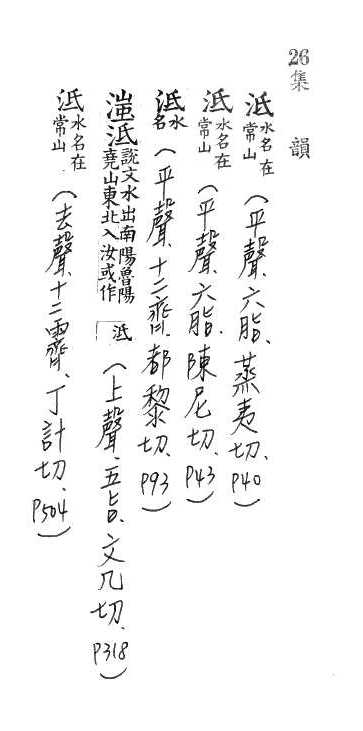 26集韻
泜水名在常山(平聲、六脂、蒸夷切、P40)
泜水名在常山(平聲、六脂、陳尼切、P43)
泜水名(平聲、十二齊、都黎切、P93)
滍泜說文水出南陽魯陽堯山東北入汝或作泜(上聲、五旨、文几切、P318)
泜水名在常山(去聲、十二霽、丁計切、P504)